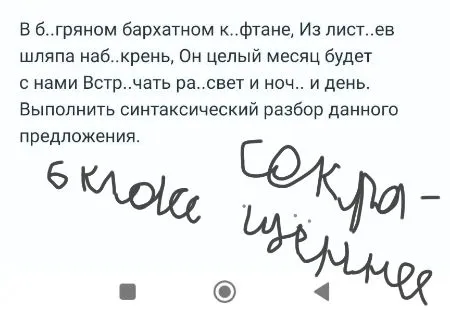 В б..гряном бархатном к..фтане, Из лист..ев
шляпа наб..крень, Он целый месяц будет
с нами Встр..чать ра..свет и ноч.. и день.
Выполнить синтаксический разбор данного
предложения.
6 класс
сокра-
щённее